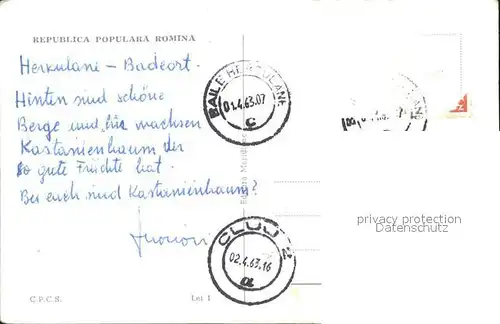 REPUBLICA POPULARĂ ROMÎNĂ
Herkulane – Badeort.
Hinten sind schöne
Berge und hir wachsen
Kastanienbaum der
so gute Früchte hat.
Bei euch sind Kastanienbaum?
BAILE HERCULANE
01.4.63.07
C
CLUJ 2
02.4.63.16
a
privacy protection
Datenschutz
C.P.C.S.
Lei 1